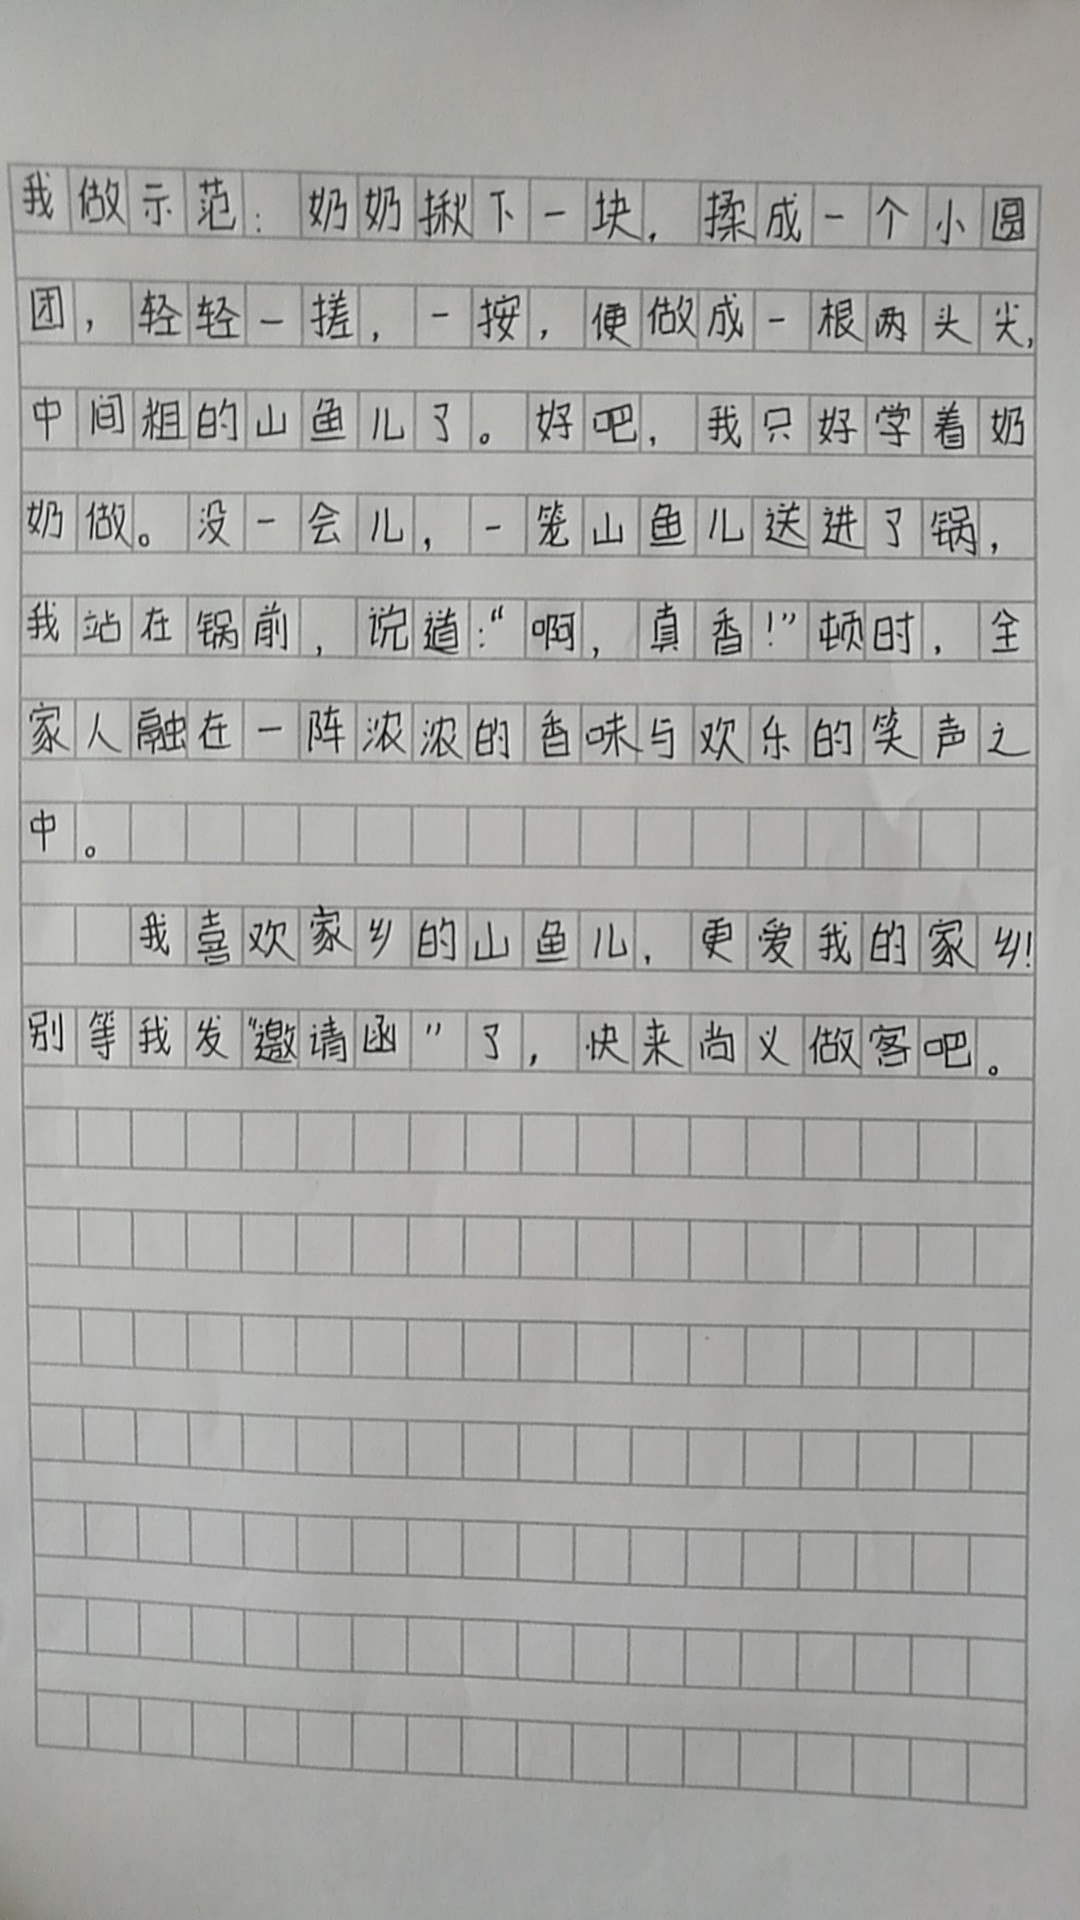 我做示范：奶奶揪下一块，揉成一个小圆
团，轻轻一搓，一按，便做成一根两头尖，
中间粗的山鱼儿了。好吧，我只好学着奶
奶做。没一会儿，一笼山鱼儿送进了锅，
我站在锅前，说道：“啊，真香！”顿时，全
家人融在一阵浓浓的香味与欢乐的笑声之
中。
我喜欢家乡的山鱼儿，更爱我的家乡！
别等我发“邀请函”了，快来尚义做客吧。